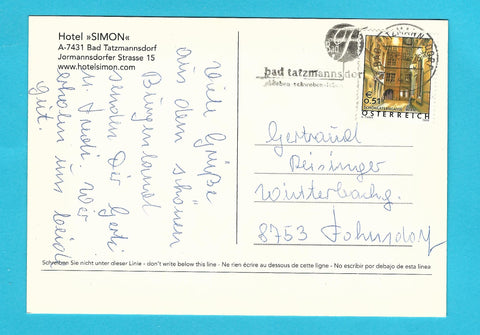 Hotel »SIMON«
A-7431 Bad Tatzmannsdorf
Jormannsdorfer Strasse 15
www.hotelsimon.com
Viele Grüße
aus dem schönen
Burgenland
senden Dir Gerti
u. Fredi. Wir
erholen uns beide
gut.
bad tatzmannsdorf
€ 0.51
ÖSTERREICH
Gertraud
Reisinger
Winterbachg.
8753 Fohnsdorf
Schreiben Sie nicht unter dieser Linie - don't write below this line - Ne rien écrire au dessous de cette ligne - No escribir por debajo de esta linea